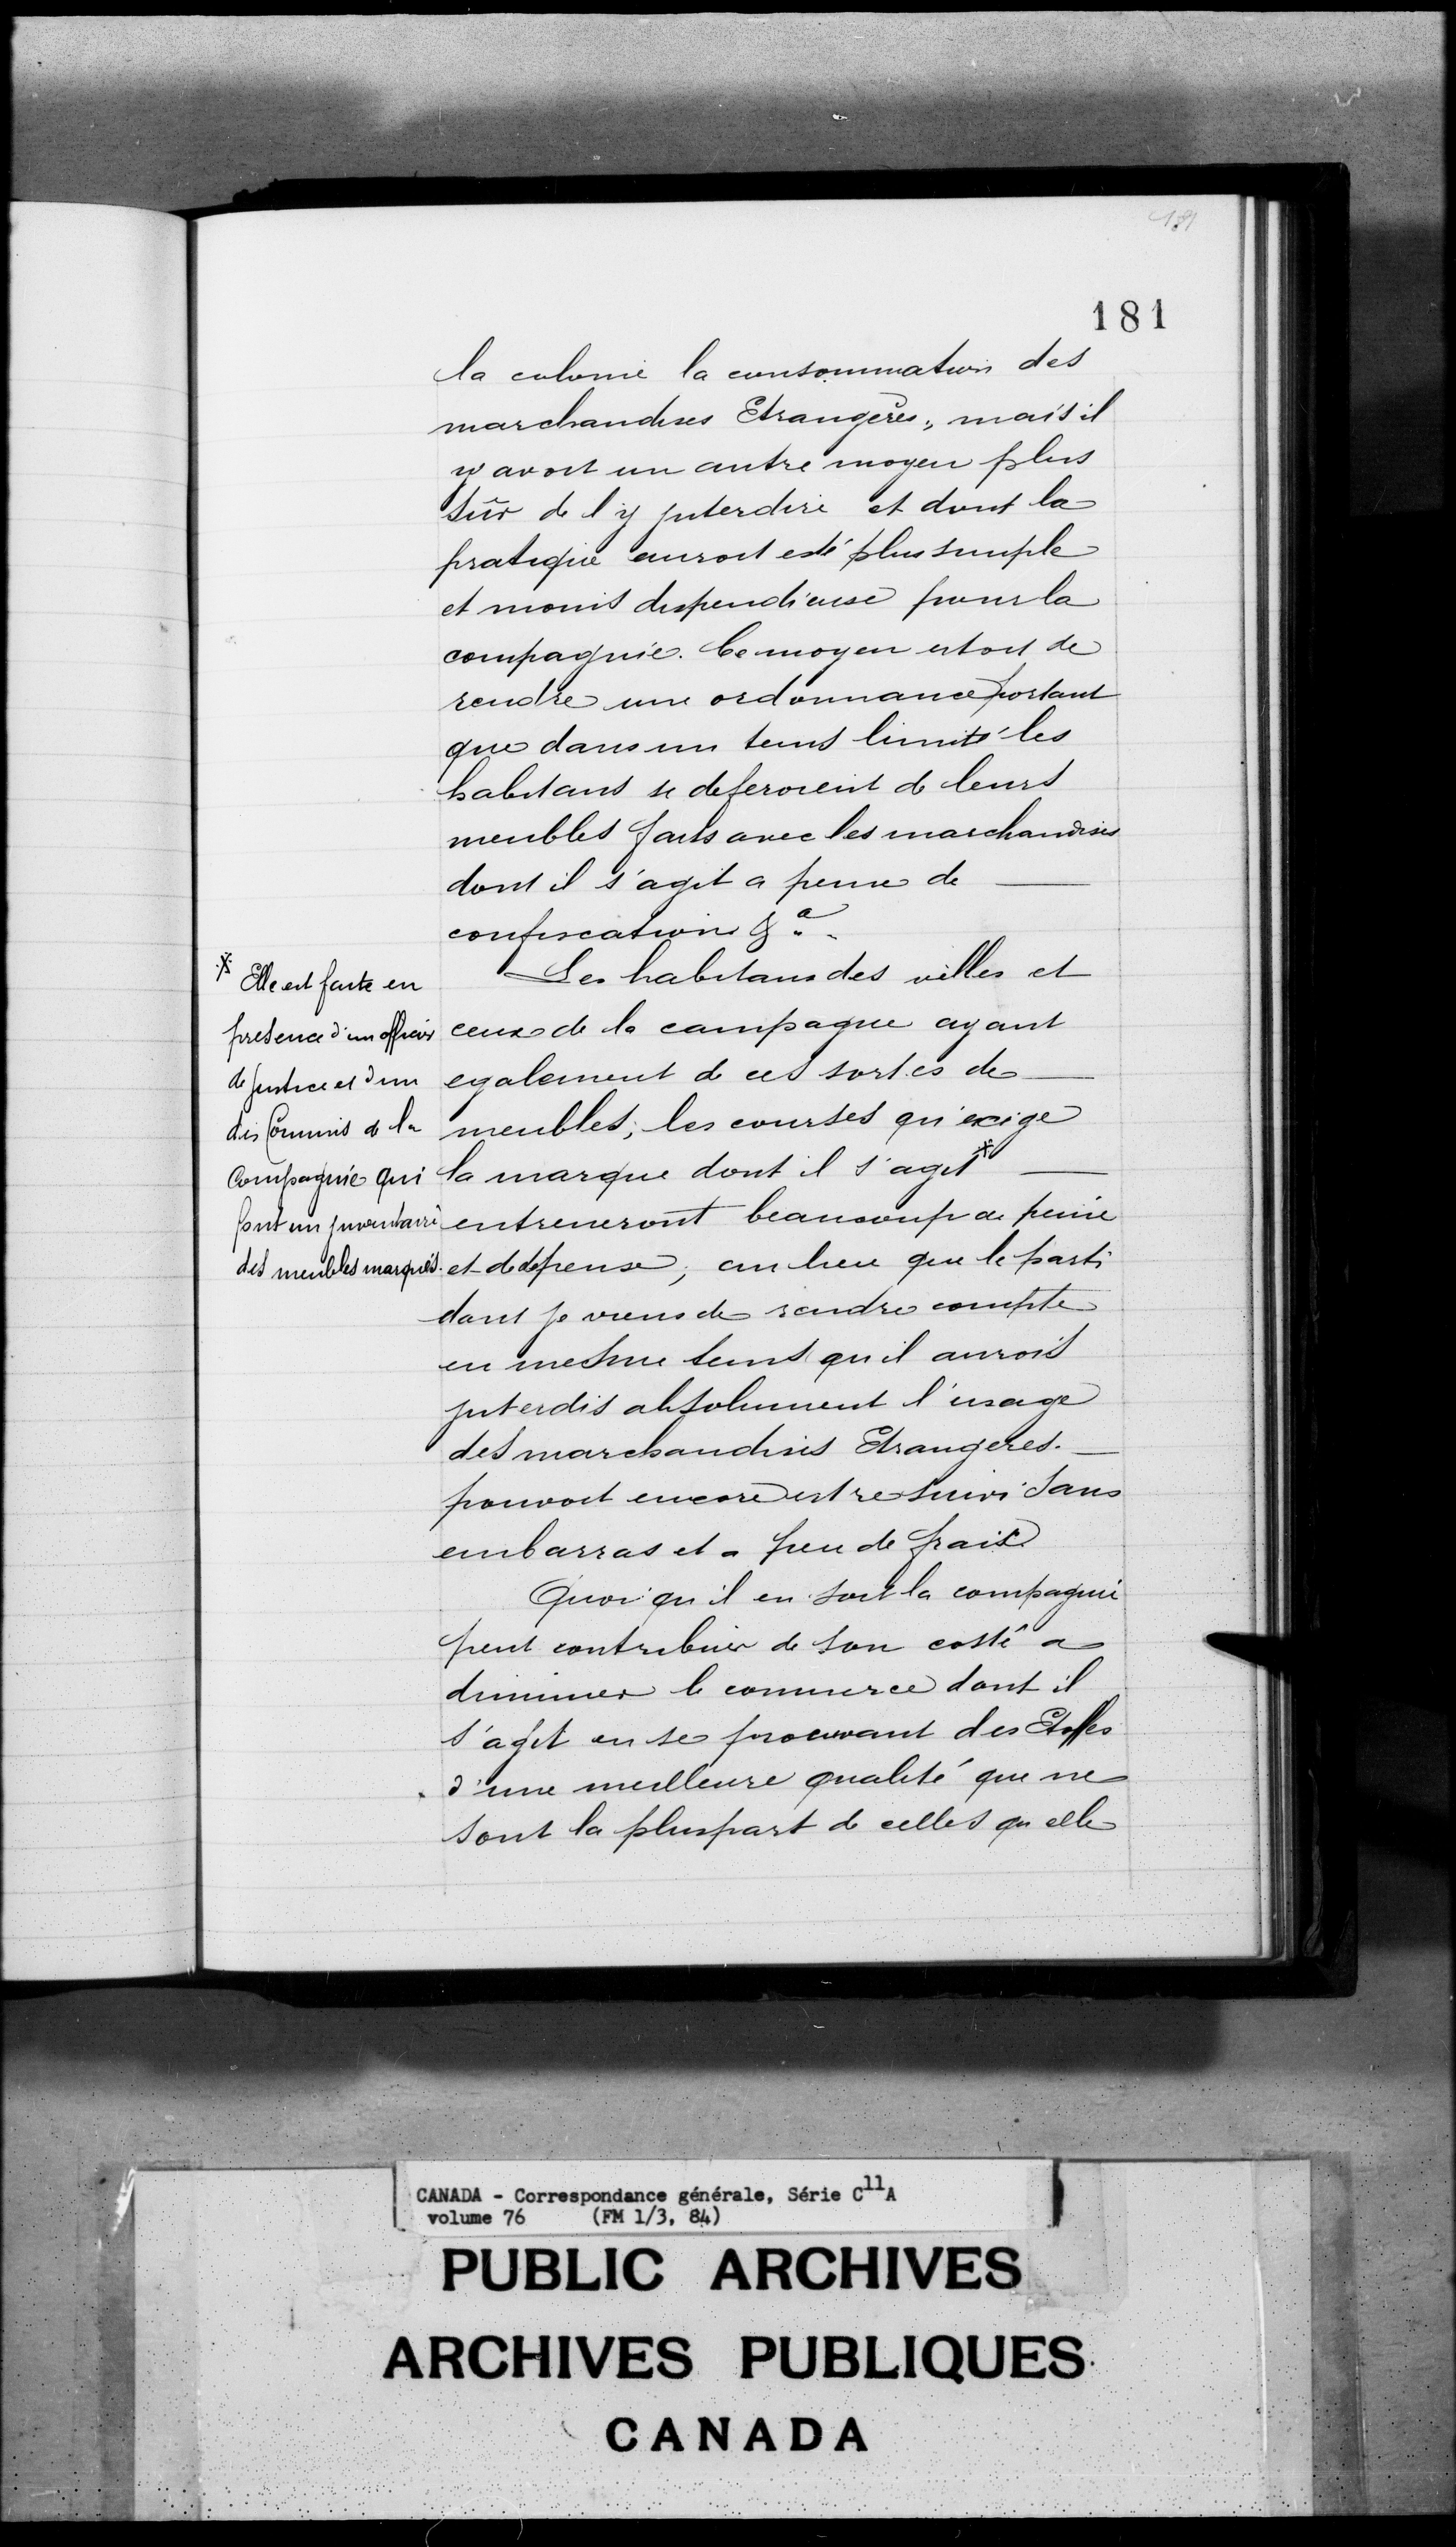 181
181
la colonie la consommation des
marchandises Etrangeres, mais il
y avoit un autre moyen plus
sûr de l'y jnterdire et dont la
pratique auroit esté plus simple
et moins dispendieuse pour la
compagnie. Ce moyen estoit de
rendre une ordonnance portant
que dans un tems limité les
habitans se deferoient de leurs
meubles faits avec les marchandises
dont il s'agit a peine de
confiscation &a.
Les habitans des villes et
ceux de la campagne ayant
egalement de ces sortes de
meubles; les courses qu'exige
la marque dont il s'agit*
entreneront beaucoup de peine
et de depense; au lieu que le parti
dont je viens de rendre compte
en mesme tems qu'il auroit
jnterdis absolument l'usage
des marchandises Etrangeres.
pouvoit encore estre suivi sans
embarras et a peu de frais
Quoi qu'il en soit la compagnie
peut contribuer de son costé a
diminuer le commerce dont il
s'agit en se procurant des Etoffes
d'une meilleure qualité que ne
sont la pluspart de celles qu'elle
* Elle est faite en
presence d'un officier
de justice et d'un
des Commis de la
Compagnie qui
font un jnventaire
des meubles marqués.
CANADA - Correspondance générale, Série C11A
volume 76 (FM 1/3, 84)
PUBLIC ARCHIVES
ARCHIVES PUBLIQUES
CANADA